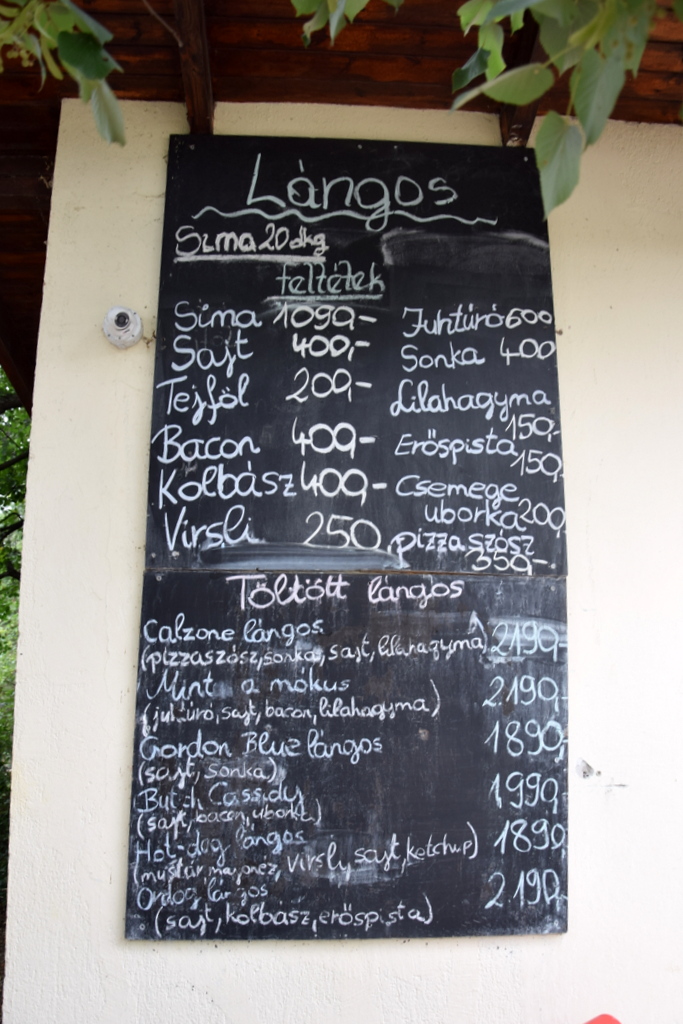 Lángos
Sima 20 dkg
feltétek
Sima 1090,-
Sajt 400,-
Tejföl 200,-
Bacon 400,-
Kolbász 400,-
Virsli 250
Juhtúró 600
Sonka 400
Lilahagyma
150,-
Erőspista
150,-
Csemege
uborka 200,
pizzaszósz
350,-
Töltött lángos
Calzone lángos
(pizzaszósz, sonka, sajt, lilahagyma) 2190,-
Mint a mókus 2190,-
(juhtúró, sajt, bacon, lilahagyma)
Gordon Bluz lángos 1890,-
(sajt, sonka)
Butch Cassidy 1990,-
(sajt, bacon, uborka)
Hot-dog lángos 1890
(mustár, majonéz, virsli, sajt, ketchup)
Ördög lángos 2190,-
(sajt, kolbász, erőspista)